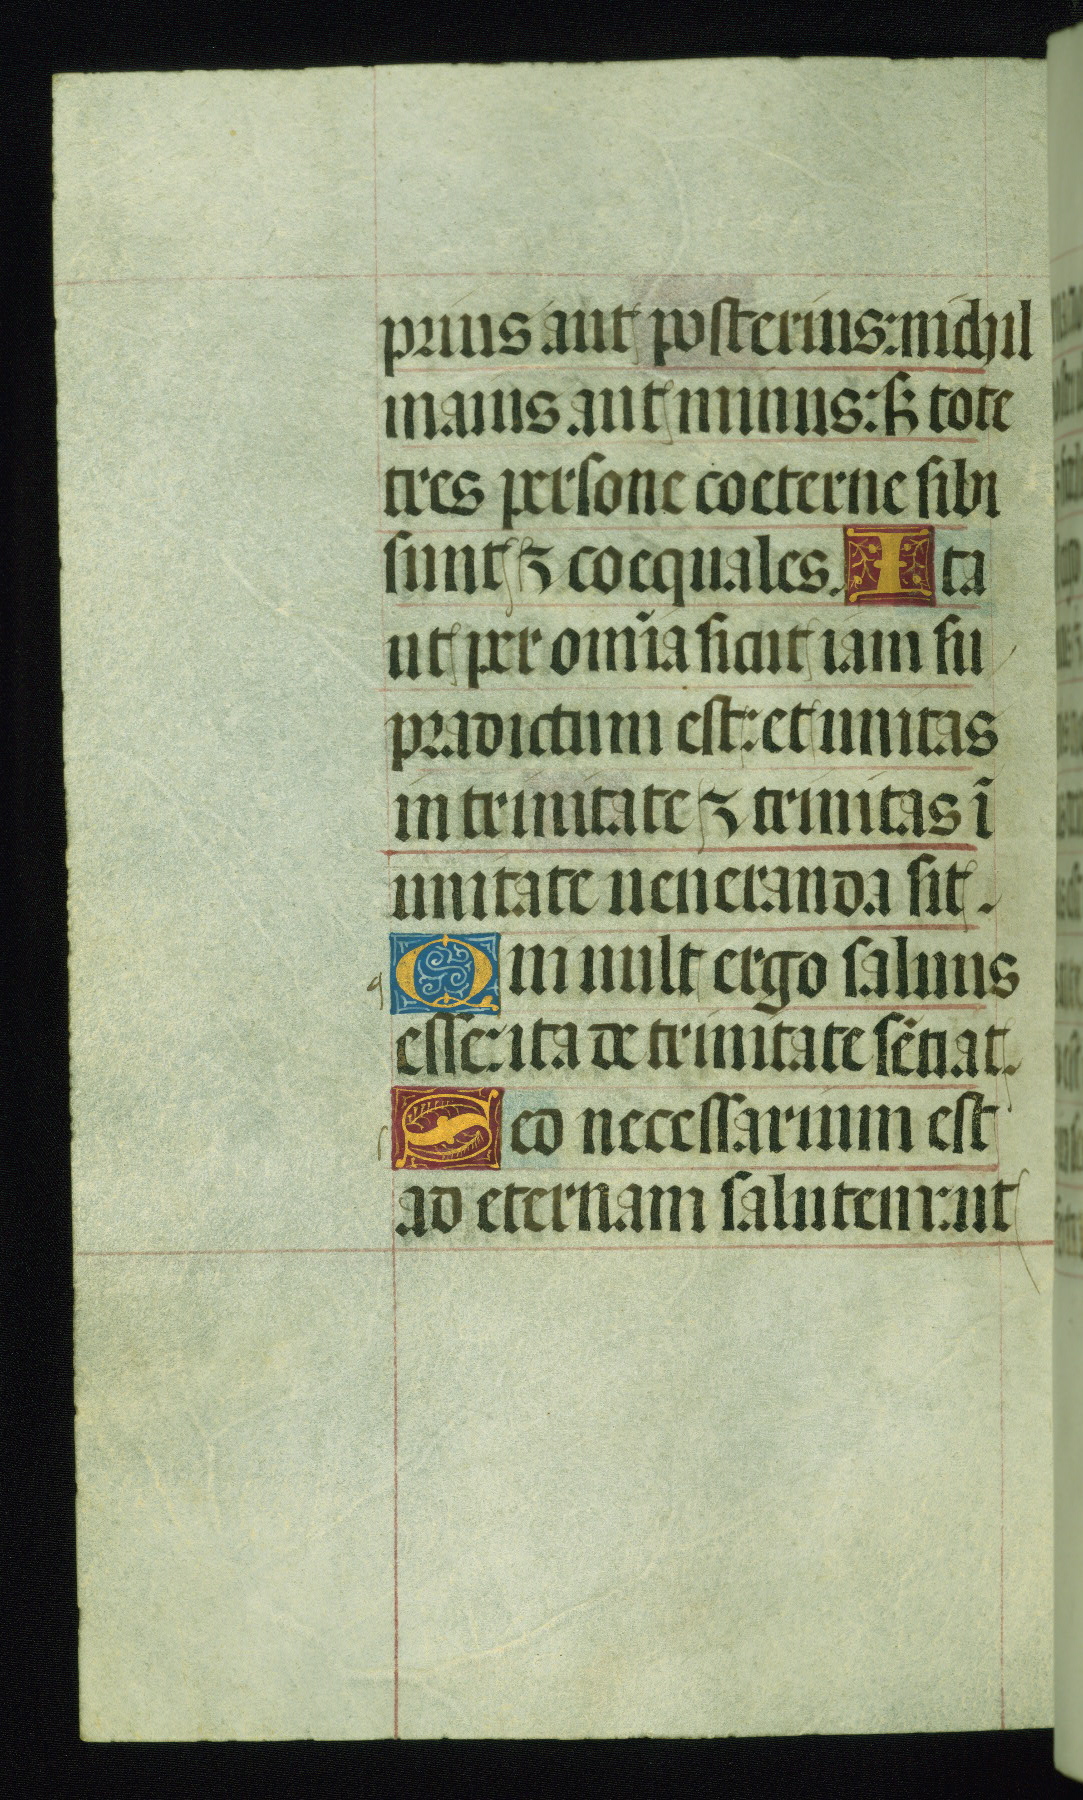 prius aut posterius: nichil
maius aut minus: sꝫ tote
tres persone coeterne sibi
sunt ⁊ coequales. Ita
ut per om̄ia sicut iam su
pradictum est: et unitas
in trinitate ⁊ trinitas ī
unitate ueneranda sit.
Qui uult ergo saluus
esse: ita de trinitate sẽtiat.
Sed necessarium est
ad eternam salutem: ut